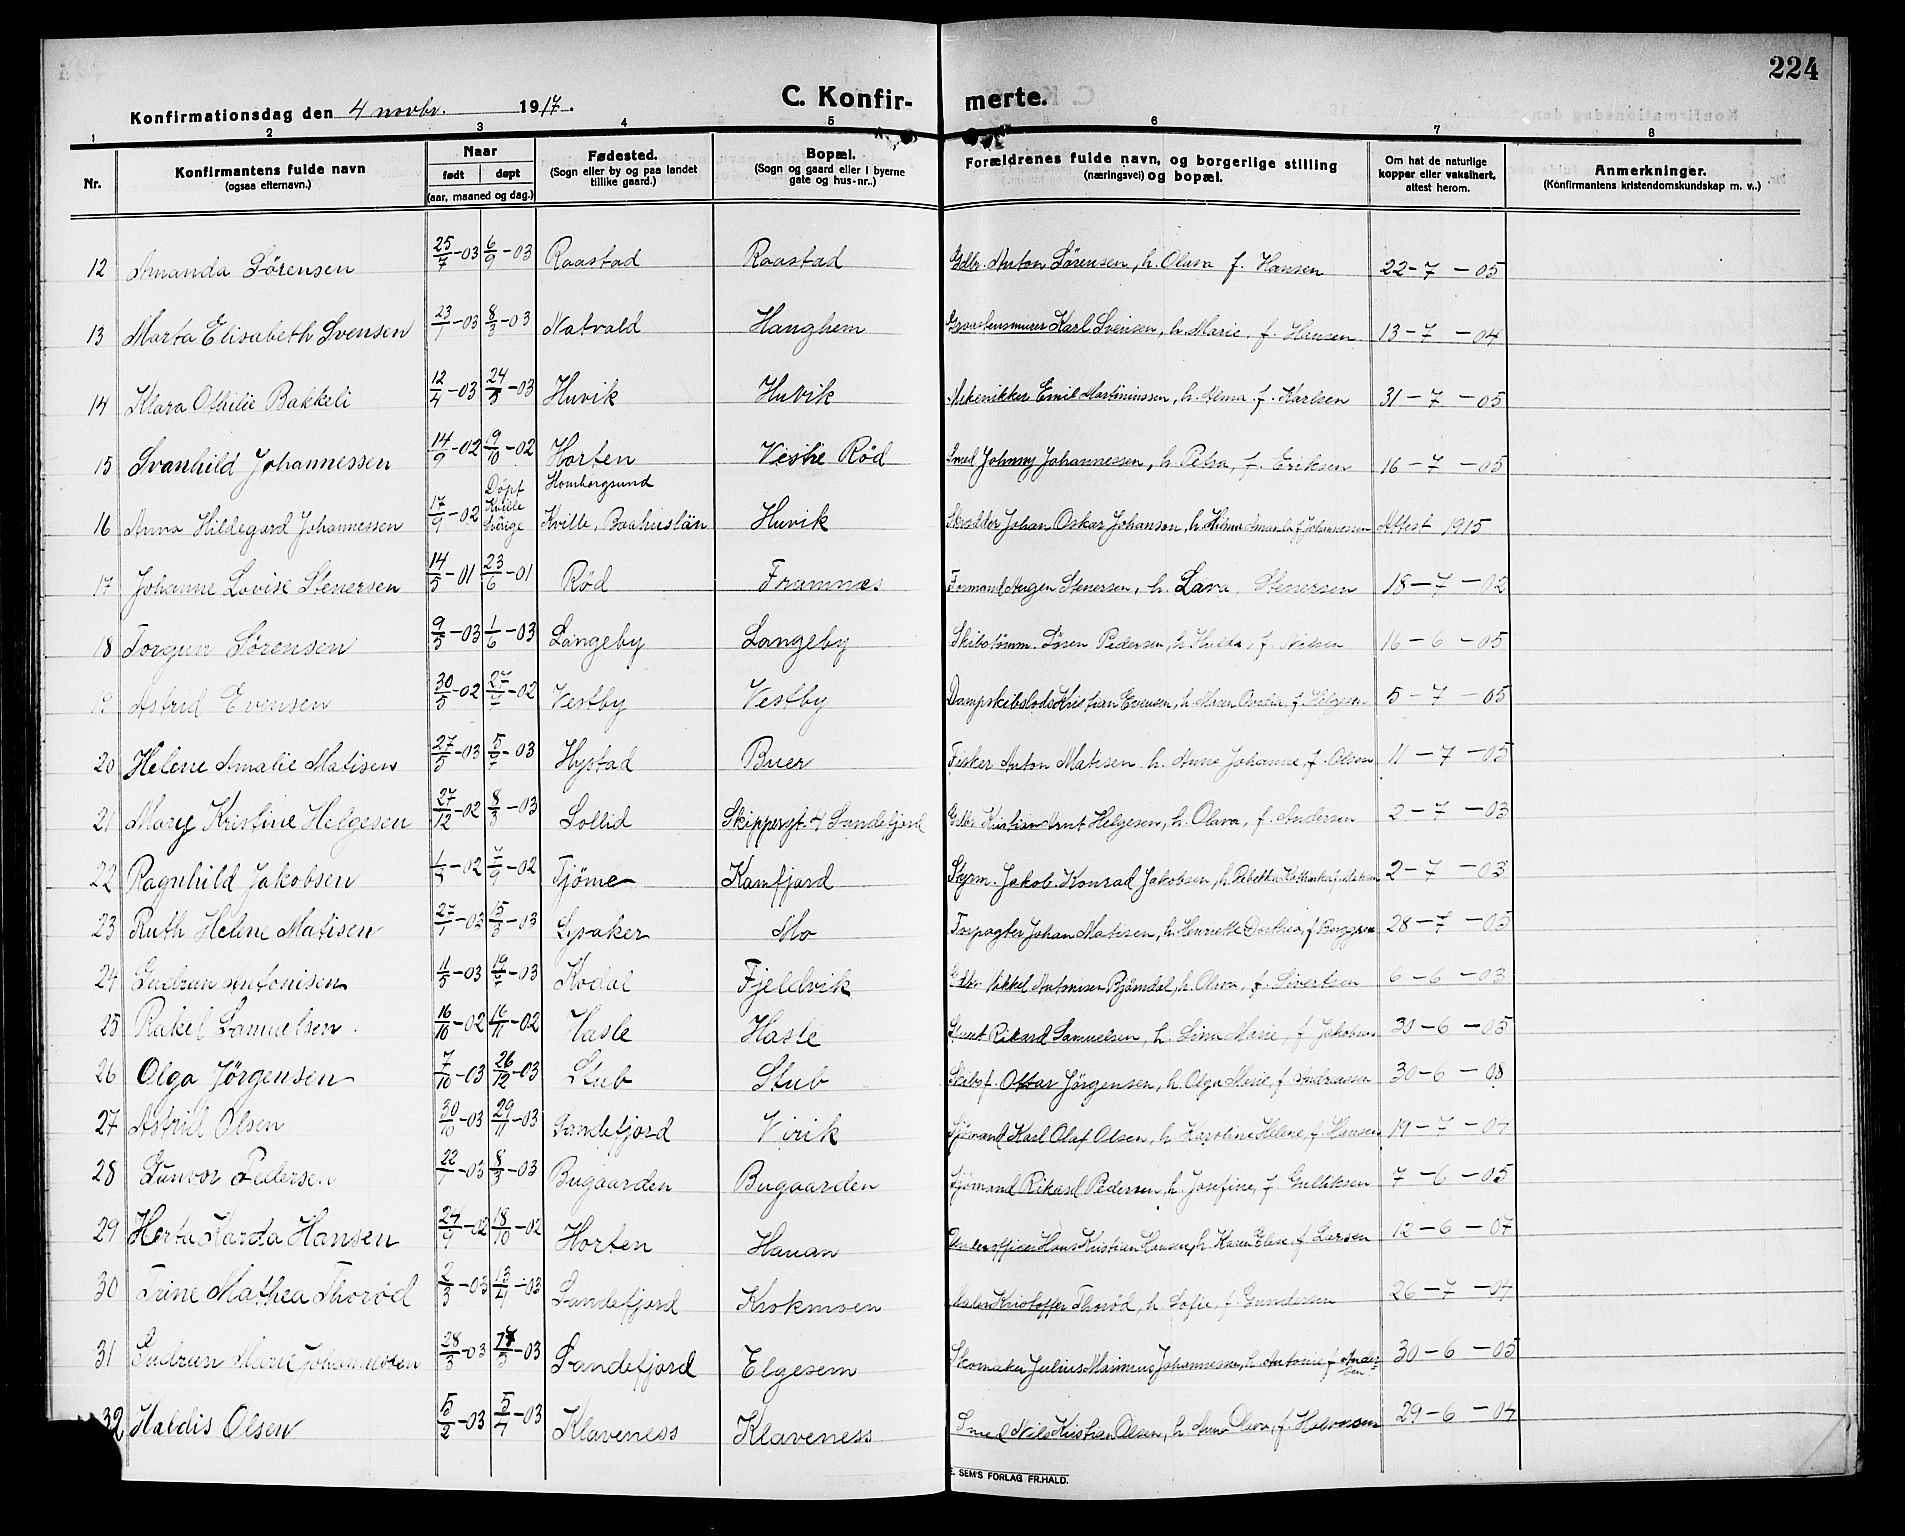 224
Konfirmationsdag den 4 novbr. 1917.
C. Konfirmerte.
1 2 3 4 5 6 7 8
Nr.
Konfirmantens fulde navn
(ogsaa efternavn.)
Naar
født døpt
(aar, maaned og dag.)
Fødested.
(Sogn eller by og paa landet
tillike gaard.)
Bopæl.
(Sogn og gaard eller i byerne
gate og hus-nr..)
Forældrenes fulde navn, og borgerlige stilling
(næringsvei) og bopæl.
Om hat de naturlige
kopper eller vaksinert,
attest herom.
Anmerkninger.
(Konfirmantens kristendomskundskap m. v..)
12 Amanda Sörensen 25/7-03 6/9-03 Raastad Raastad Gdbr. Anton Sörensen, h. Olava f. Hansen 22-7-05
13 Marta Elisabeth Svensen 23/1-03 8/3-03 Natvald Haughem Graastensmurer Karl Svensen, h. Marie, f. Hansen 13-7-04
14 Klara Othilie Bakkeli 12/4-03 24/5-03 Huvik Huvik Mekenikker Emil Martiniussen, h. Alma f. Karlsen 31-7-05
15 Svanhild Johannessen 14/9-02 19/10-02 Horten Vestre Rød Smed Johnny Johannessen, h. Petra, f. Eriksen 16-7-05
16 Anna Hildegard Johannessen 17/9-02 Döpt Kville Sverige Homborgsund Kville, Baahuslän Huvik Skrædder Johan Oskar Johanson, h. Hilma Amanda f. Johannessen Attest 1915
17 Johanne Lovise Stenersen 14/5-01 23/6-01 Rød Framnæs Formand Augen Stenersen, h. Lava Stenersen 18-7-02
18 Torgun Sörensen 9/5-03 1/6-03 Langeby Langeby Skibstömm. Sören Pedersen, h. Hulda, f. Nilsen 16-6-05
19 Astrid Evensen 30/5-02 27/7-02 Vestby Vestby Dampskibslods Kristian Evensen, h. Maren f. Helgesen 5-7-05
20 Helene Amalie Matisen 27/5-03 5/7-03 Hystad Buer Fisker Anton Matisen h. Anne Johanne, f. Olsen 11-7-05
21 Mary Kristine Helgesen 27/12-02 8/3-03 Sollid Skippergt. 4 Sandefjord Gdbr. Kristian Arnt Helgesen, h. Olava, f. Andersen 2-7-03
22 Ragnhild Jakobsen 1/8-02 7/9-02 Tjöme Kamfjord Styrm. Jakob Konrad Jakobsen, h. Rebekka 2-7-03
23 Ruth Helene Matisen 27/1-03 15/3-03 Lysaker Mo Forpagter Johan Matisen, h. Henriette Dorthea, f. Berggren 28-7-05
24 Gudrun Antonisen 11/5-03 19/7-03 Kodal Fjeldvik Gdbr. Antonisen Bjömdal, h. Olava, f. Sivertsen 6-6-03
25 Rakel Samuelsen 16/10-02 16/11-02 Hasle Hasle Rikard Samuelsen, h. Lina Marie, f. Jakobsen 30-6-05
26 Olga Jörgensen 7/10-03 26/12-03 Stub Stub Skibsf. Ottar Jörgensen, h. Olga Marie, f. Andreassen 30-6-08
27 Astrid Olsen 30/10-03 29/11-03 Sandefjord Virik Sjömand Karl Olaf Olsen, h. Karoline Helene, f. Hansen 19-7-04
28 Gunvor Pedersen 22/1-03 8/3-03 Bugaarden Bugaarden Sjömand Rikard Pedersen, h. Josefine, f. Gulliksen 7-6-05
29 Herta Narda Hansen 24/9-02 18/10-02 Horten Hauan Underofficer Hans Kristian Hansen, h. Karen Elise, f. Larsen 12-6-07
30 Trine Mathea Thoröd 2/3-03 13/4-03 Sandefjord Krokmoen Maler Kristoffer Thoröd, h. Sofie, f. Gundersen 26-7-04
31 Gudrun Marie Johannessen 28/3-03 17/5-03 Sandefjord Elgesem Skomaker Julius Marinius Johannessen, h. Antonie f. Andersen 30-6-05
32 Haldis Olsen 5/2-03 5/4-03 Klaveness Klaveness Smed Nils Kristian Olsen, h. Anna Olava, f. Halvorsen 29-6-04
E. SEM'S FORLAG FR.HALD.